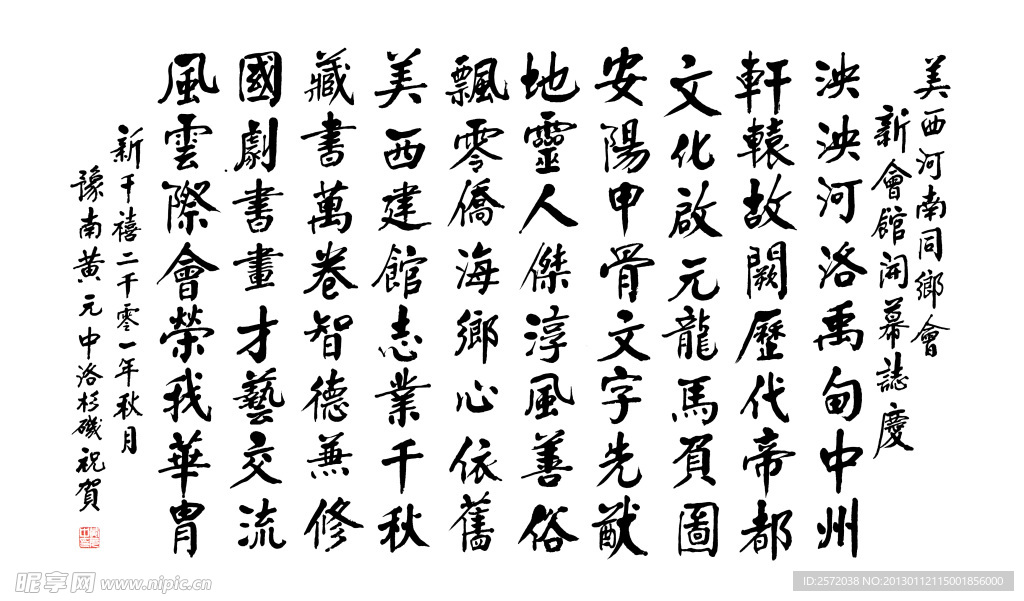 美西河南同鄉會
新會館開幕誌慶
泱泱河洛禹甸中州
軒轅故闕歷代帝都
文化啟元龍馬負圖
安陽甲骨文字先猷
地靈人傑淳風善俗
飄零僑海鄉心依舊
美西建館志業千秋
藏書萬卷智德兼修
國劇書畫才藝交流
風雲際會榮我華胄
新千禧二千零一年秋月
豫南黄元中洛杉磯祝賀
昵享网 www.nipic.cn
ID:2572038 NO:20130112115001856000